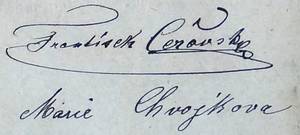 František Čeřovský
Marie Chvojkova